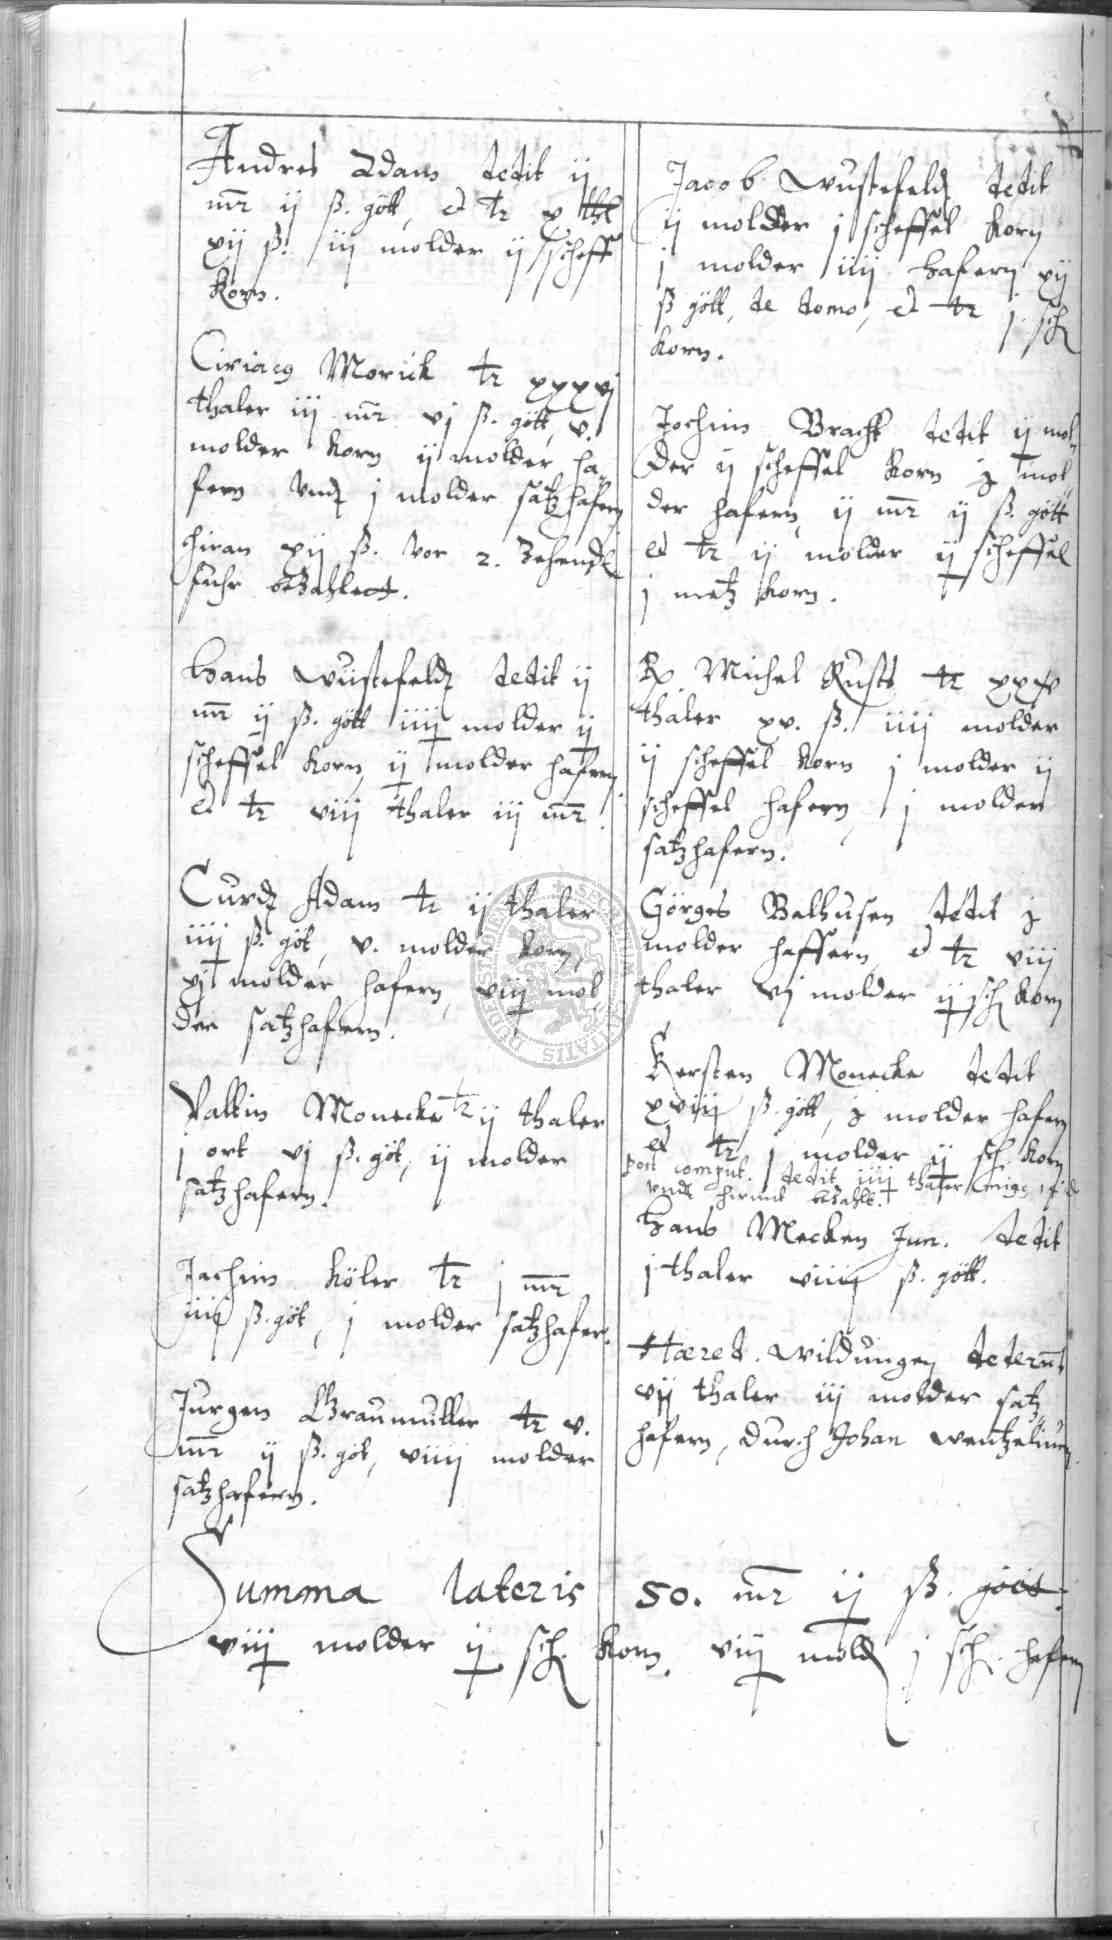 Andres Adam dedit ij
mr ij ß. gött, et tr x thl
xij ß. iij molder ij scheff
Korn.
Ciriacus Morick tr xxxvj
thaler iij mr vj ß. gött, v.
molder Korn ij molder ha-
fern vnd j molder satzhafern
hiran xij ß. vor 2. Zehend
fuhr bezahlet.
Hans Wüstefeldt dedit ij
mr ij ß. gött iiij molder ij
scheffel Korn, ij molder hafern
et tr viij thaler iij mr.
Curdt Adam tr ij thaler
iiij ß. göt, v. molder Korn,
xj molder hafern, viij mol-
der satzhafern.
Valtin Monecke tr ij thaler
j ort vj ß. göt, ij molder
satzhafern.
Jachim Köler tr j mr
iiij ß. göt, j molder satzhafer.
Jurgen Graumuller tr v.
mr ij ß. göt, viiij molder
satzhafern.
Jacob Wustefeldt dedit
ij molder j scheffel Korn
j molder iiij hafern xij
ß gött, de domo, et tr j. sch
Korn.
Jochim Bracht dedit ij mol-
der ij scheffel Korn mol-
der hafern, ij mr ij ß. gött
et tr ij molder ij scheffel
j metz Korn.
Michel Rust tr
thaler xv. ß. iiij molder
ij scheffel Korn j molder ij
scheffel hafern, j molder
satzhafern.
Görges Balhusen dedit
molder haffern, et tr viij
thaler vj molder ij sch Korn
Kersten Monecke dedit
xviij ß. gött, molder hafern
et tr j molder ij sch. Korn
post comput. dedit iiij thaler
vnd hirmit bezahlt.
Hans Mecken Jun. dedit
j thaler viiij ß. gött.
Hæred. Wildungen dederunt
vij thaler iij molder satz
hafern, durch Johan Wentzelium
Summa lateris 50. mr ij ß. gött.
viij molder ij sch. Korn. viij mold j sch. hafern